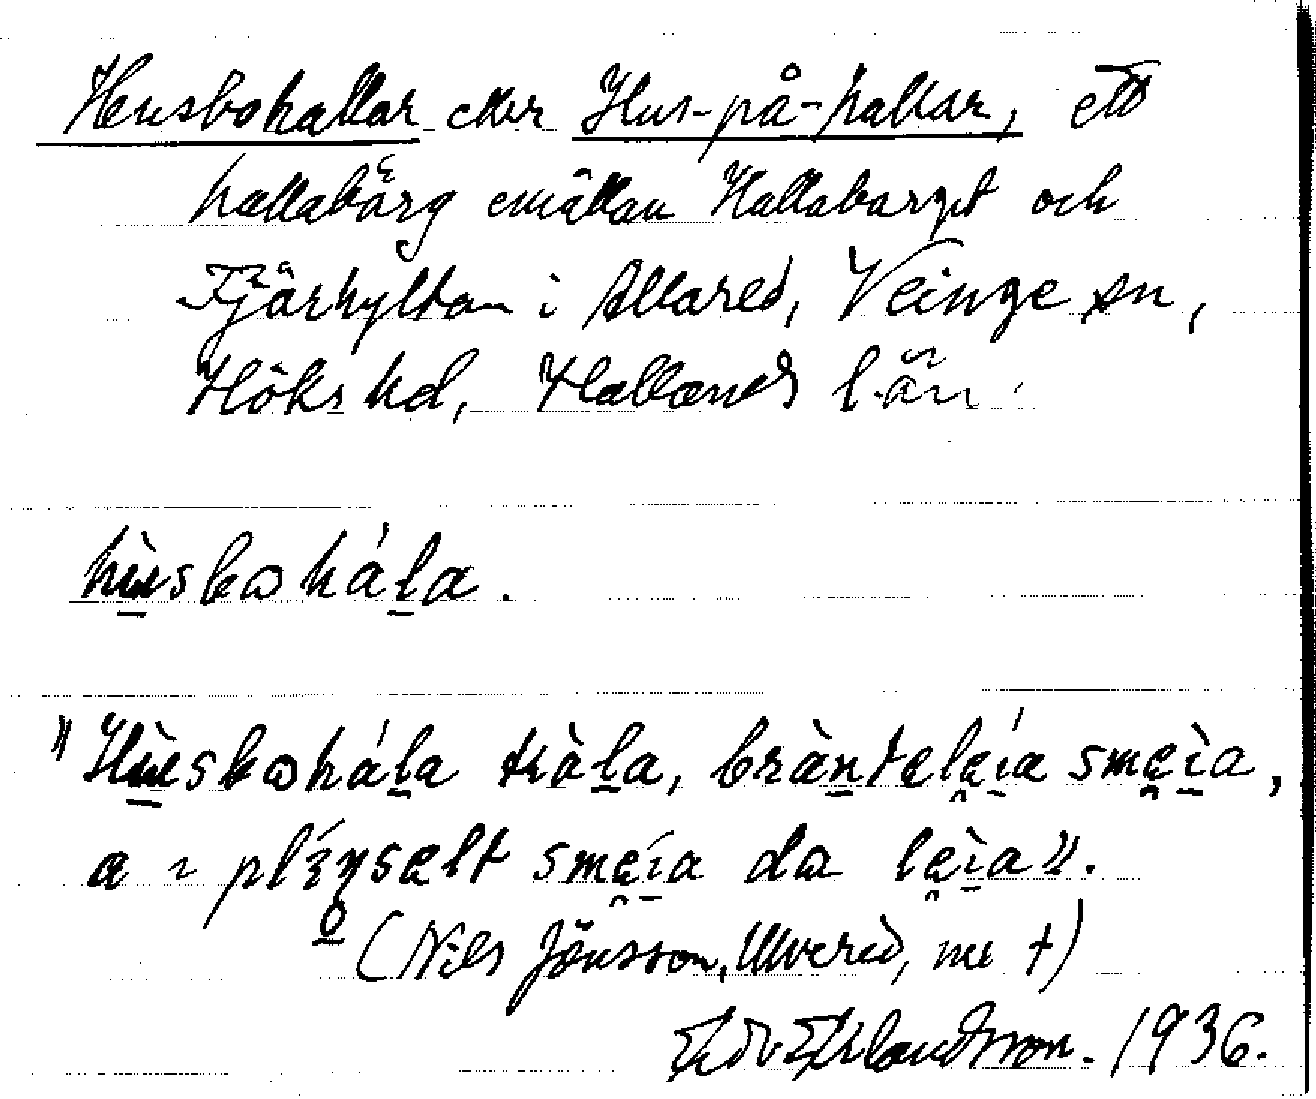 Husbohallar eller Hus-på-hallar, ett
hallabärg emällan Hallabarget och
Tjärhyltan i Allared, Veinge sn,
Höks hd, Hallands län.
hùsbohála.
"Hùsbohála tràla, brànteleía smeìa,
a i plíŋselt smeía da leìa".
(Nils Jönsson, Ulvered, nu †)
1936.